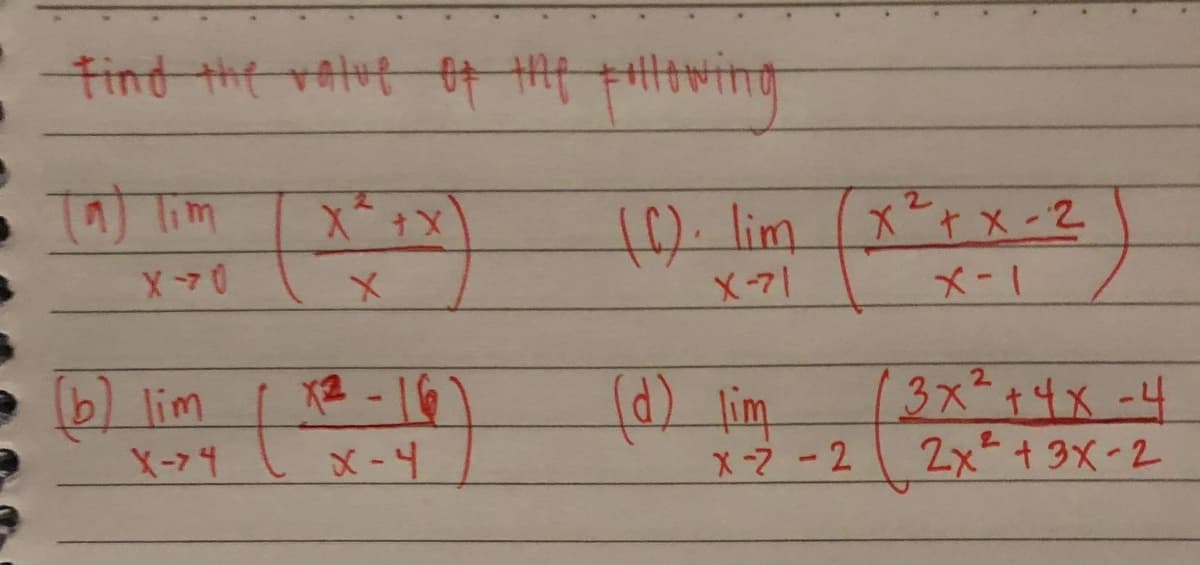 find the value of the following
(a) lim ( x² + x / x )
x → 0
(C). lim ( x² + x - 2 / x - 1 )
x → 1
(b) lim ( x2 - 16 / x - 4 )
x → 4
(d) lim ( 3x² + 4x - 4 / 2x² + 3x - 2 )
x → - 2